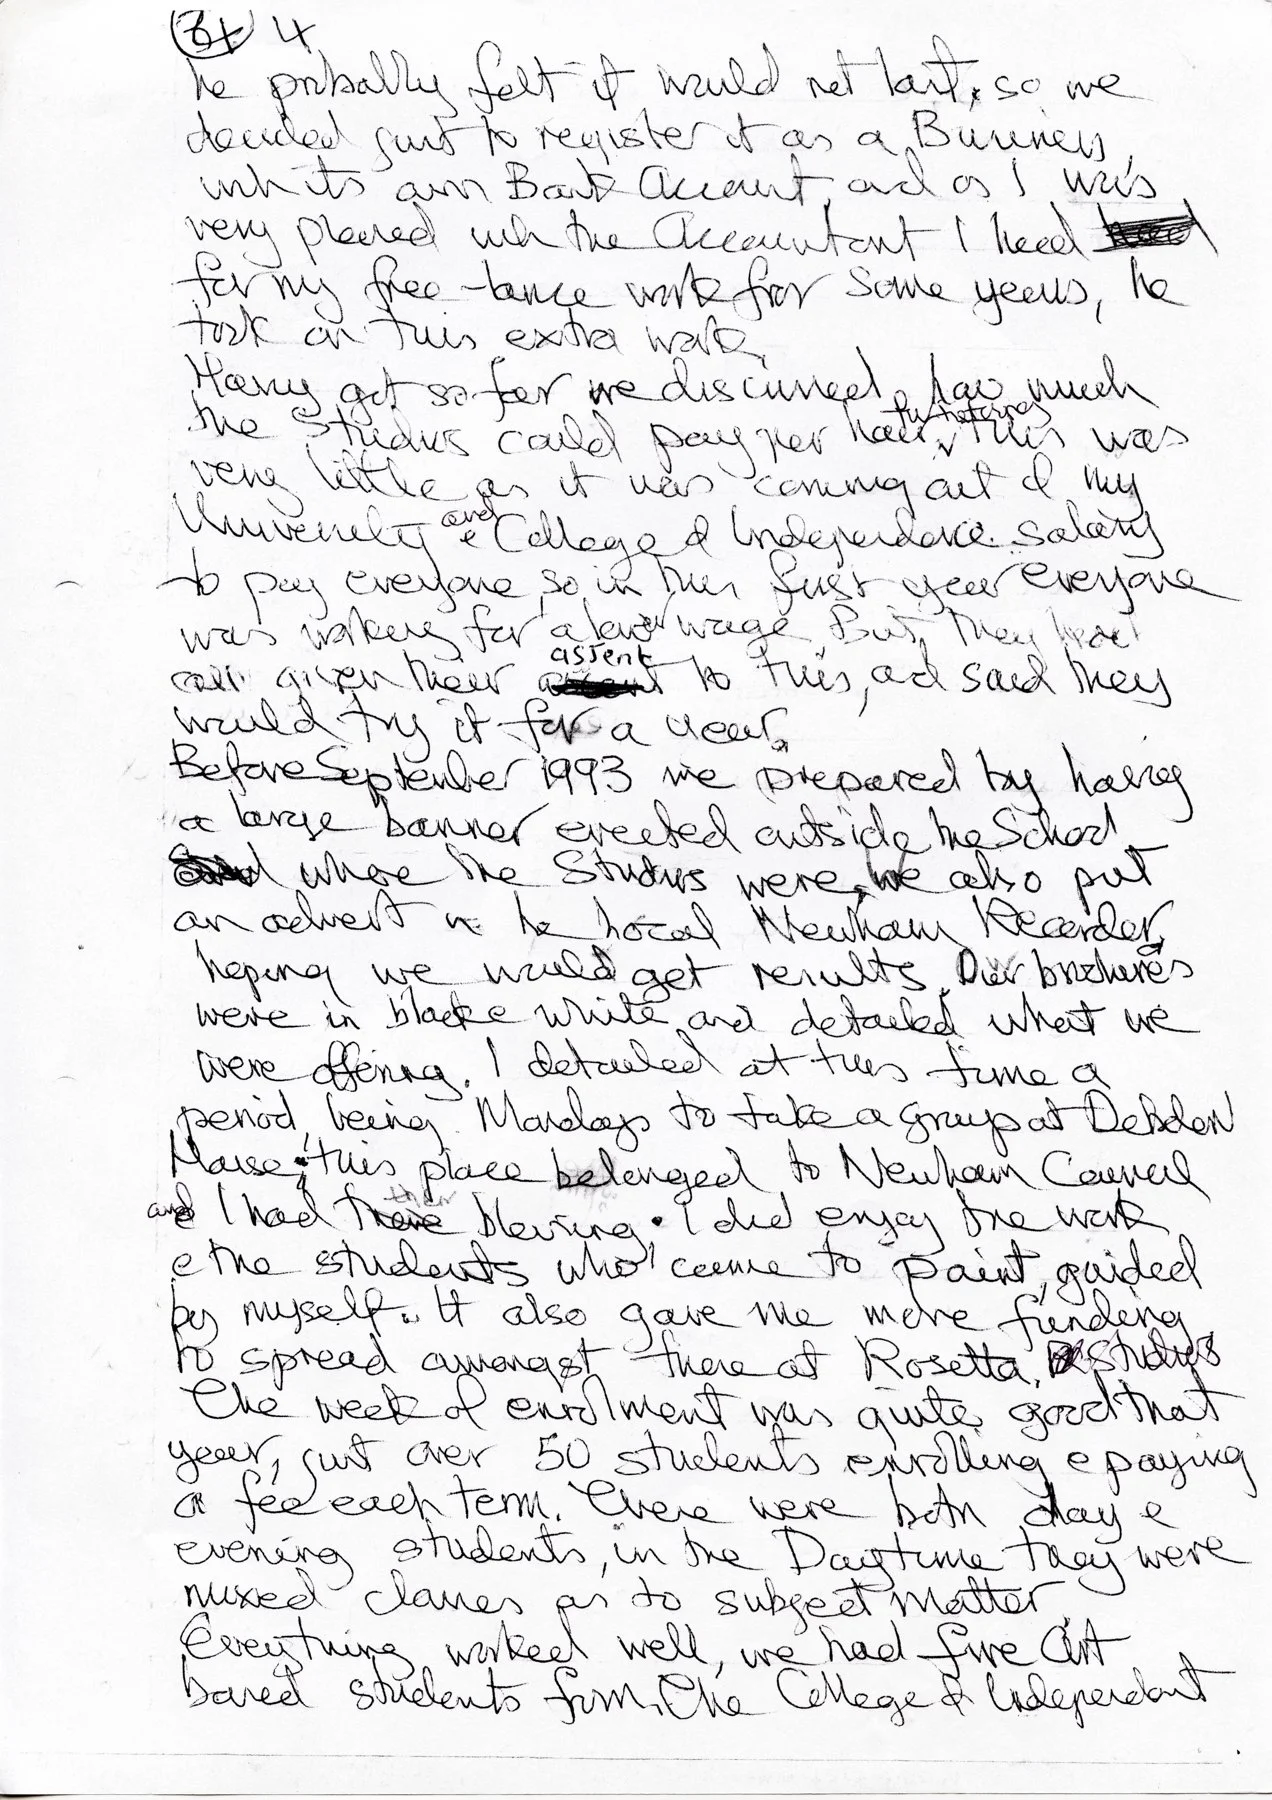 4
he probably felt it would not last, so we
decided just to register it as a Business,
with its own Bank Account, and as I was
very pleased with the Accountant I had
for my free-lance work for some years, he
took on this extra work.
Having got so far we discussed how much
the Studios could pay per hour for tutoring, this was
very little as it was coming out of my
University and College of Independance salary
to pay everyone, so in this first year everyone
was working for a lower wage. But, they had
all given their assent to this, and said they
would try it for a year.
Before September 1993 we prepared by having
a large banner erected outside the School
where the Studios were, we also put
an advert in the local Newham Recorder,
hoping we would get results. Our brochures
were in black & white, and detailed what we
were offering. I detailed at this time a
period, being Mondays to take a group at Debden
House, this place belonged to Newham Council
and I had their blessing. I did enjoy the work
& the students who came to paint, guided
by myself. It also gave me more funding
to spread amongst those at Rosetta Studios
The week of enrolment was quite good that
year, just over 50 students enrolling & paying
a fee each term. There were both day &
evening students, in the Daytime they were
mixed classes as to subject matter.
Everything worked well, we had fine Art
based students from The College of Independant